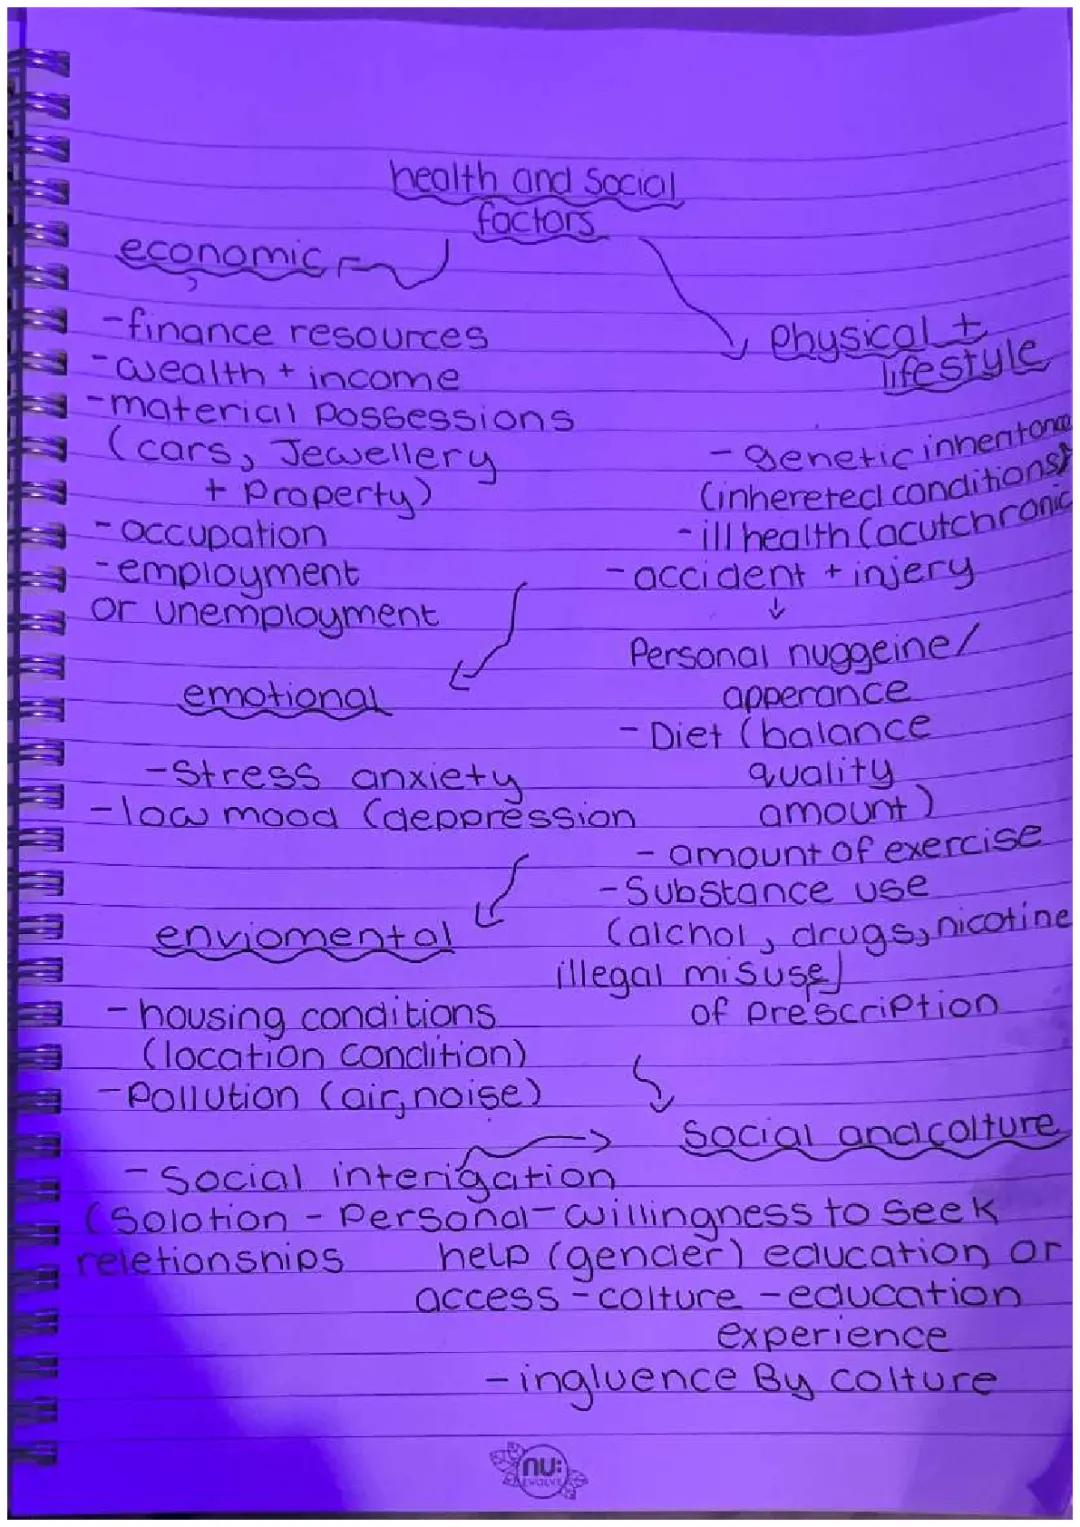 health and Social
factors
economic
-finance resources
-wealth + income
-material Possessions
(cars, Jewellery
+ Property)
-occupation
-employment
or unemployment
emotional
-Stress anxiety
-low mood (deppression
enviomental
-housing conditions
(location condition)
-Pollution (air, noise)
-Social interigation
(Solotion - Personal-willingness to seek
reletionships help (gender) education or
access -colture -education
experience
-ingluence By colture
Physical +
lifestyle
-genetic inheritance
(inhereted conditions)
-ill health (acutchronic
-accident + injery
Personal nuggeine/
apperance
-Diet (balance
quality
amount)
-amount of exercise
-Substance use
(alchol, drugs, nicotine
illegal misuse)
of Prescription
Social and colture
nu:
EVOLVE